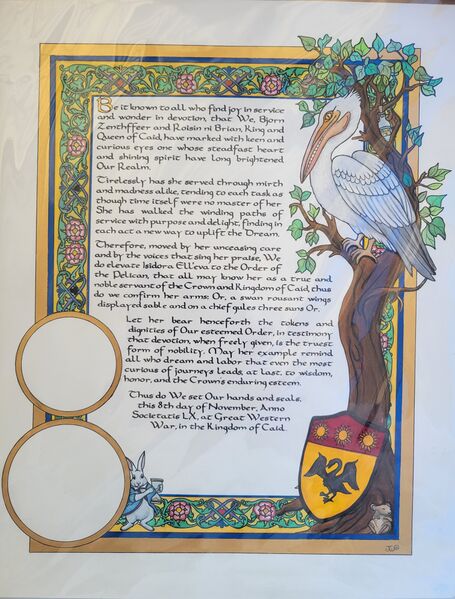 Be it known to all who find joy in service
and wonder in devotion, that We, Bjorn
Zenthffeer and Roisin ni Brian, King and
Queen of Caid, have marked with keen and
curious eyes one whose steadfast heart
and shining spirit have long brightened
Our Realm.
Tirelessly has she served through mirth
and madness alike, tending to each task as
though time itself were no master of her.
She has walked the winding paths of
service with purpose and delight, finding in
each act a new way to uplift the Dream.
Therefore, moved by her unceasing care
and by the voices that sing her praise, We
do elevate Isidora Ell'eva to the Order of
the Pelican, that all may know her as a true and
noble servant of the Crown and Kingdom of Caid, thus
do we confirm her arms: Or, a swan rousant wings
displayed sable and on a chief gules three suns Or.
Let her bear henceforth the tokens and
dignities of Our esteemed Order, in testimony
that devotion, when freely given, is the truest
form of nobility. May her example remind
all who dream and labor that even the most
curious of journeys leads, at last, to wisdom,
honor, and the Crown's enduring esteem.
Thus do We set Our hands and seals,
this 8th day of November, Anno
Societatis LX, at Great Western
War, in the Kingdom of Caid.